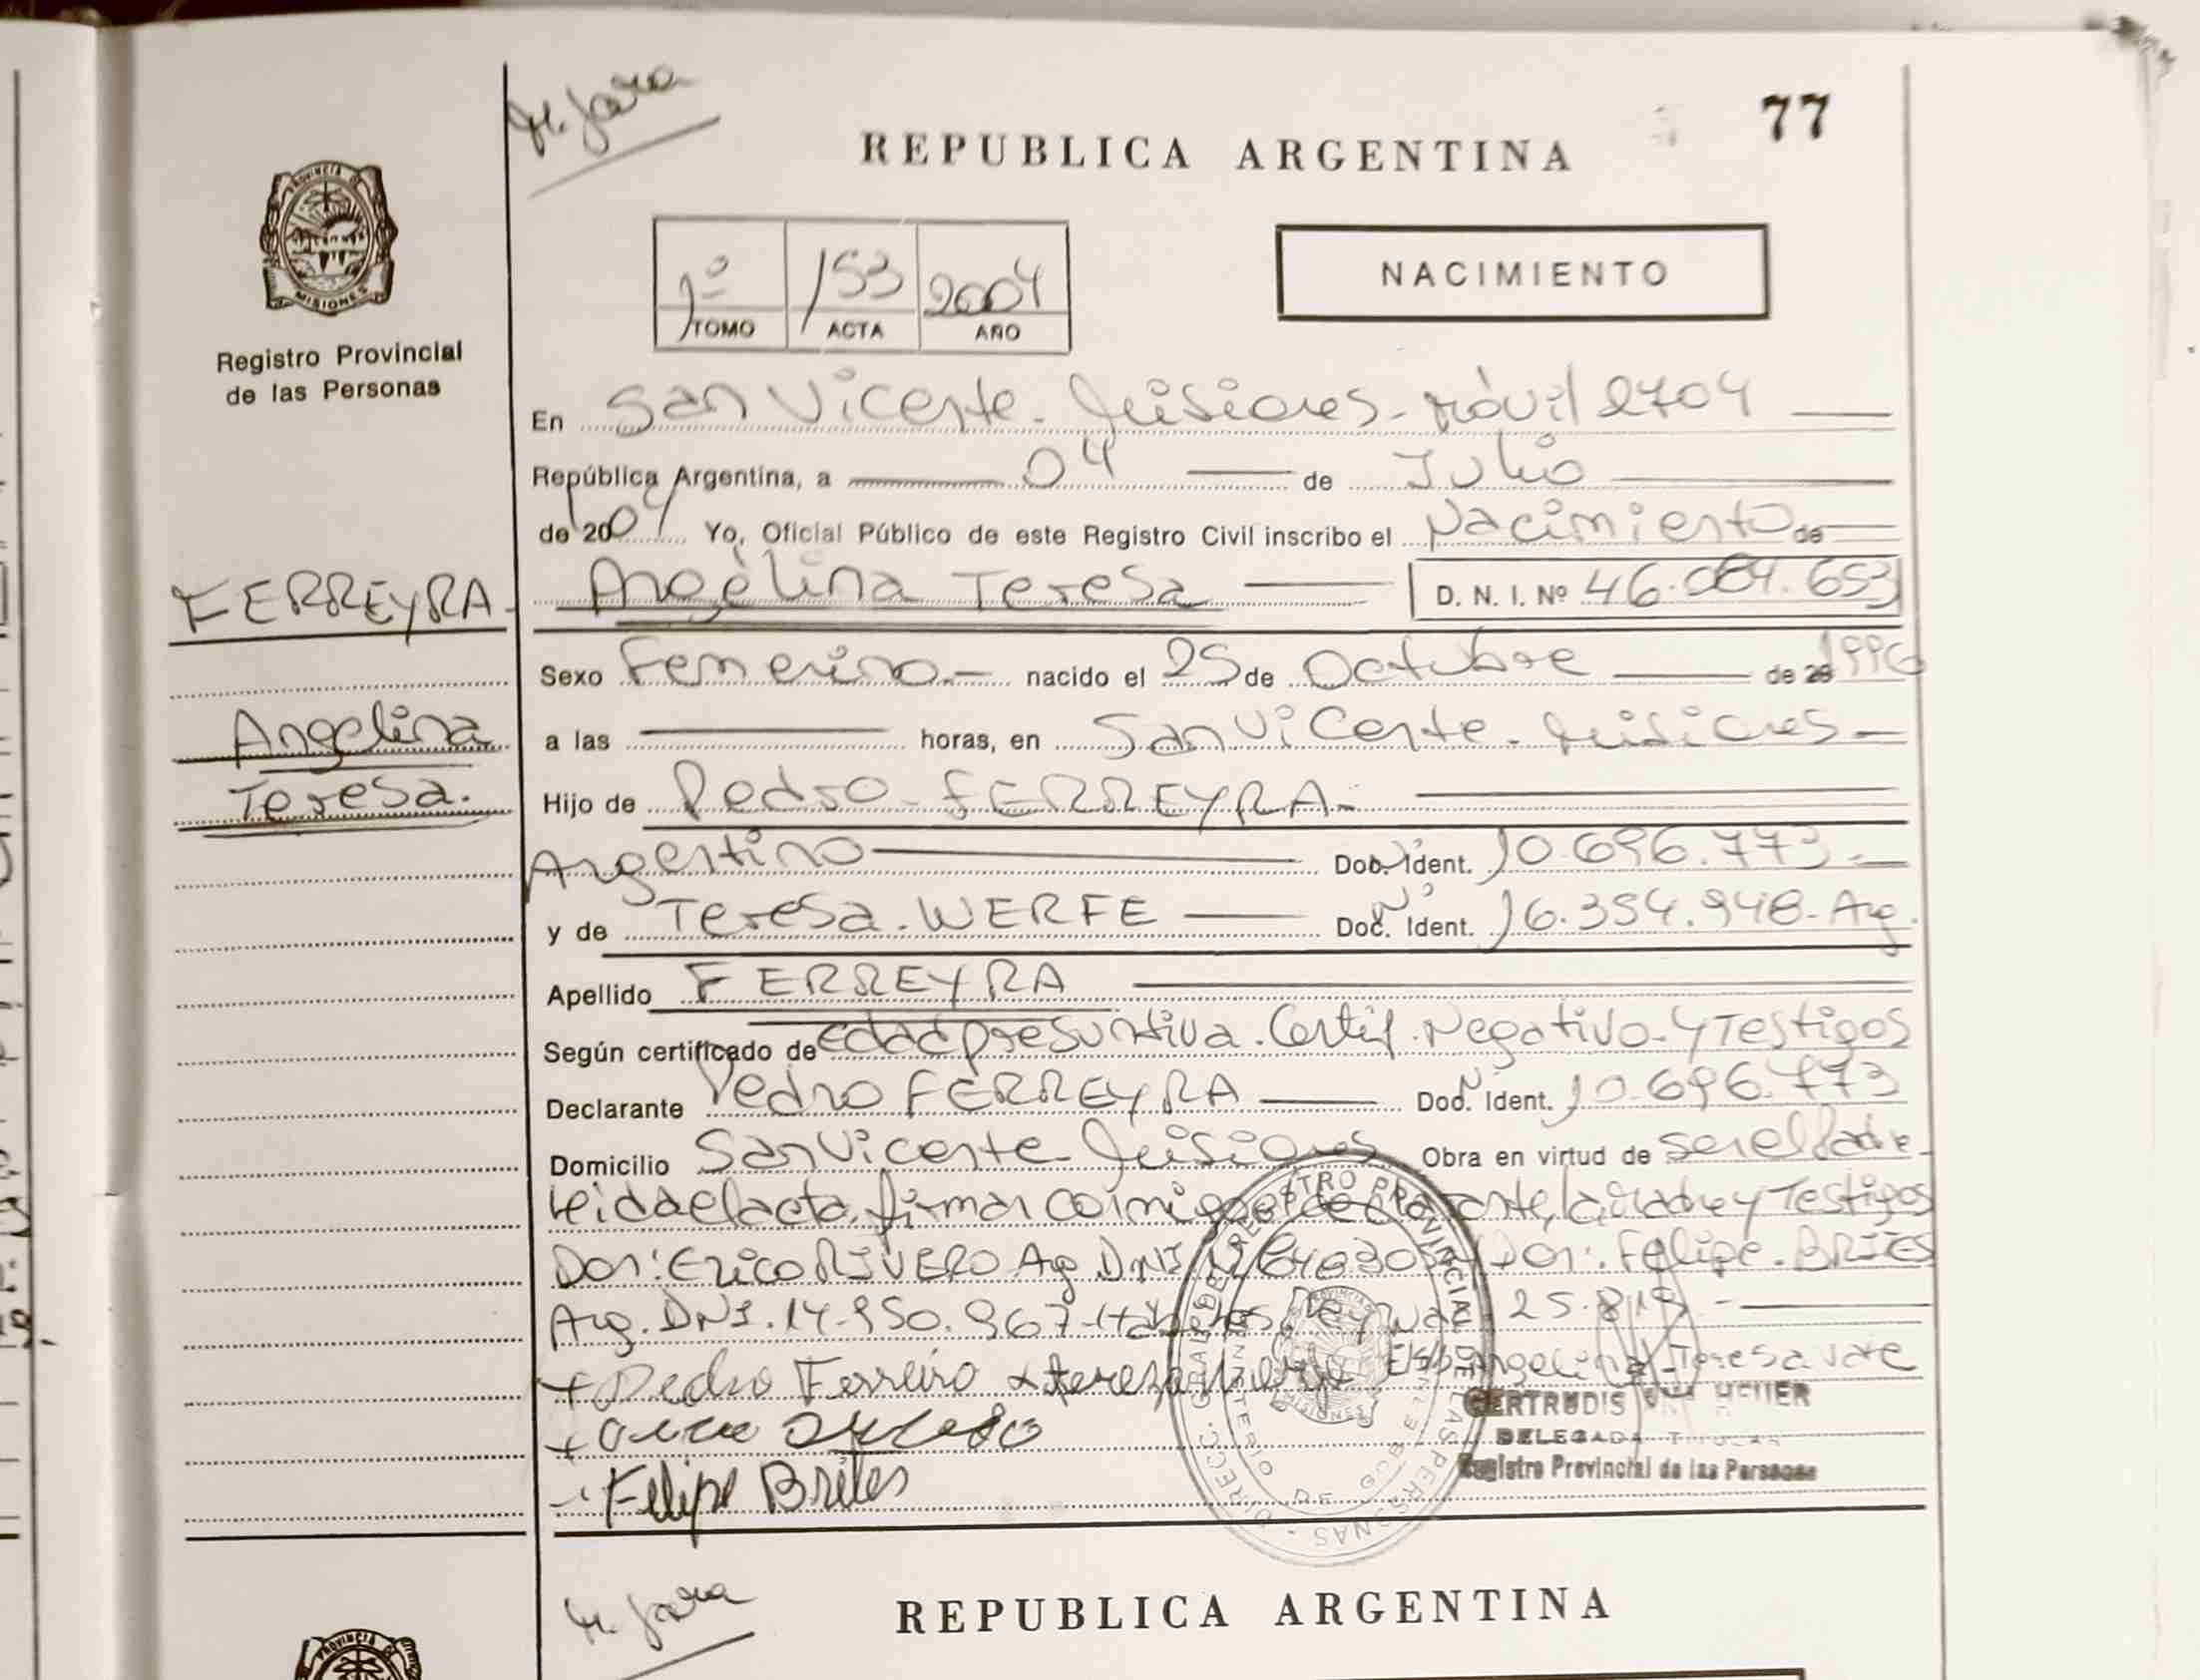 M. Jara
77
REPUBLICA ARGENTINA
PROVINCIA DE
MISIONES
Registro Provincial
de las Personas
1º 153 2004
TOMO ACTA AÑO
NACIMIENTO
En San Vicente - Misiones - Móvil 2704
República Argentina, a 04 de Julio
de 2004 Yo, Oficial Público de este Registro Civil inscribo el Nacimiento de
FERREYRA
Angelina Teresa D. N. I. Nº 46.084.653
Sexo Femenino.- nacido el 25 de Octubre de 20 1996
Angelina
Teresa.
a las horas, en San Vicente - Misiones -
Hijo de Pedro - FERREYRA -
Argentino Doc. Ident. 10.696.773 -
y de Teresa . WERFE Doc. Ident. 16.354.948 - Arg.
Apellido FERREYRA
Según certificado de edad presuntiva . Certif. Negativo - y Testigos
Declarante Pedro FERREYRA Doc. Ident. 10.696.773
Domicilio San Vicente - Misiones Obra en virtud de ser el Padre -
Leida el acta, firman conmigo el la Madre y Testigos
Don: Erico RIVERO Arg. DNI Don: Felipe . BRITES
Arg. DNI. 14.950.967 - Ley 25.819 -
+ Pedro Ferreiro x tereza Angelina Teresa vale
GERTRUDIS
DELEGADA TITULAR
Registro Provincial de las Personas
Felipe Brites
M. Jara
REPUBLICA ARGENTINA
PROVINCIA